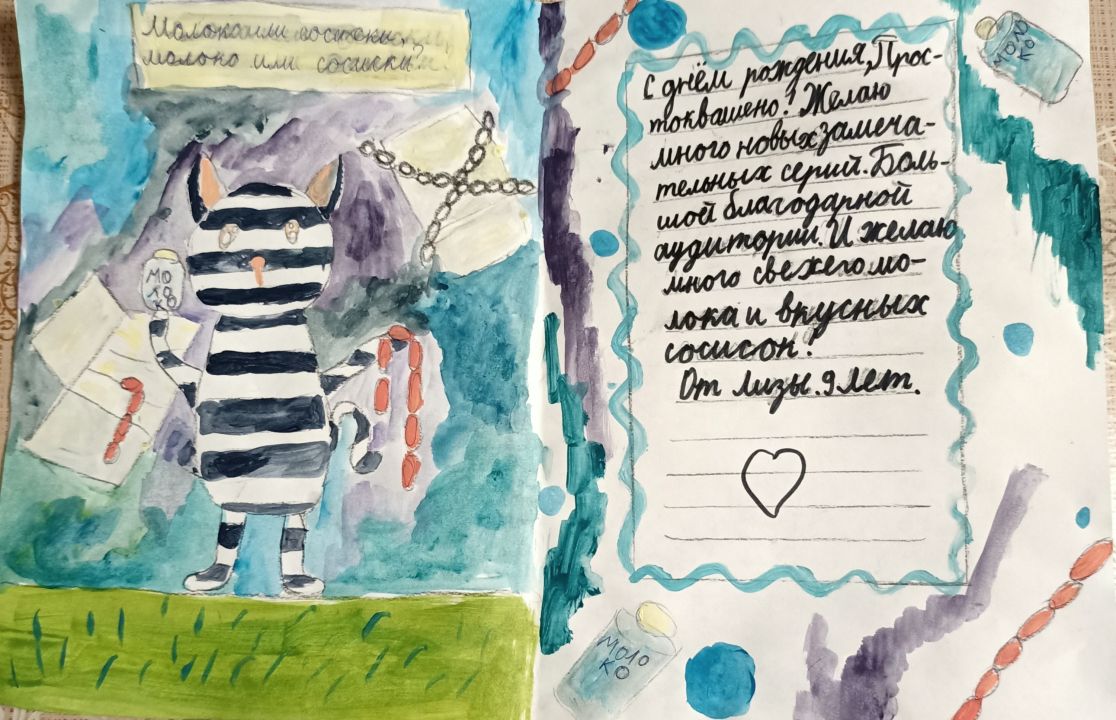 Молоко или сосиски,
молоко или сосиски?
МО
ЛО
КО
С днём рождения, Прос-
токвашено! Желаю
много новых замеча-
тельных серий. Боль-
шой благодарной
аудитории. И желаю
много свежего мо-
лока и вкусных
сосисок!
От Лизы. 9 лет.
МОЛО
КО
МОЛО
КО